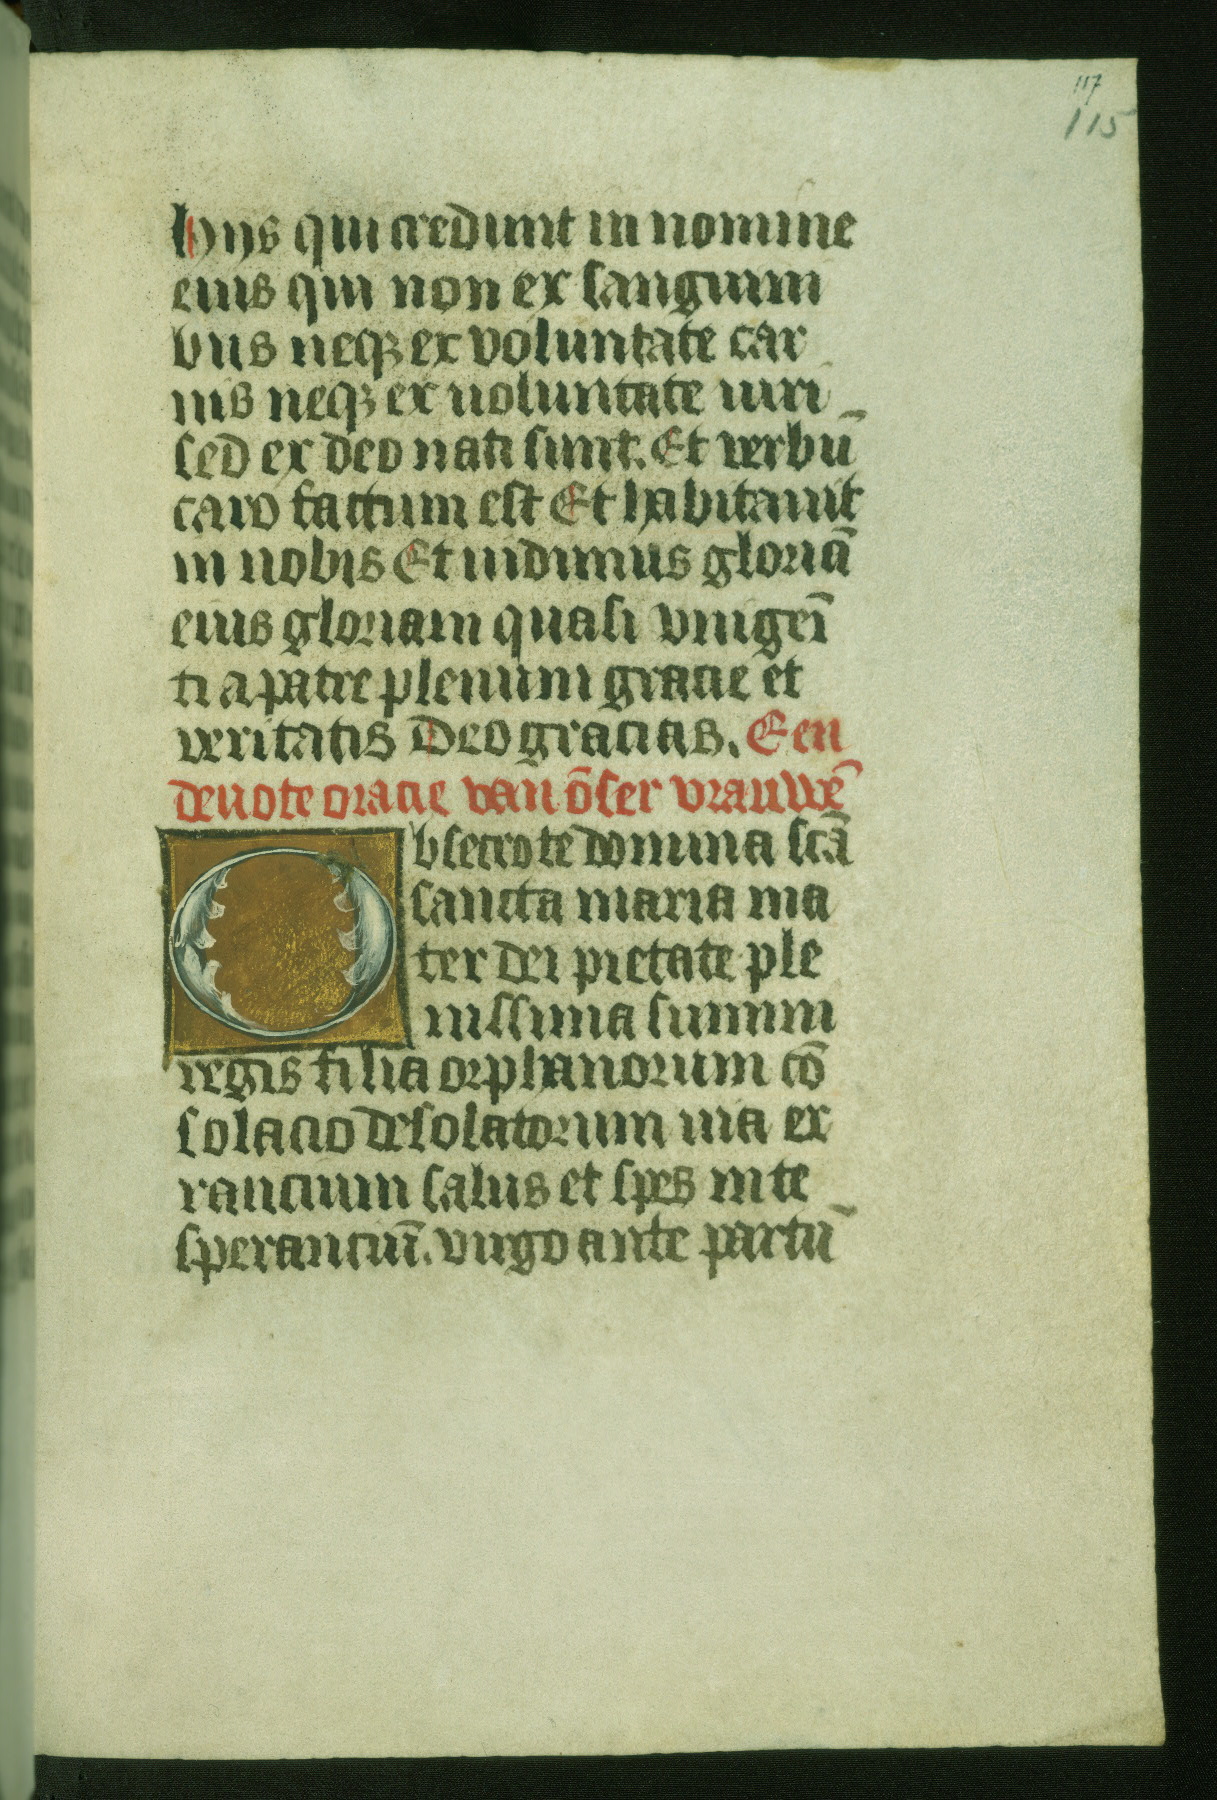 117
115
hijs qui credunt in nomine
eius qui non ex sanguini
bus neqꝫ ex voluntate car
nis neqꝫ ex uoluntate uiri
sed ex deo nati sunt. Et verbū
caro factum est Et habitauit
in nobis Et uidimus gloriā
eius gloriam quasi vnigeī
ti a patre plenum gracie et
veritatis Deo gracias. Een
deuote oracie van ōser vrauwē
Obsecro te domina scā
sancta maria ma
ter dei pietate ple
nissima summi
regis filia orphanorum cō
solacio desolatorum uia er
rancium salus et spes in te
speranciū. virgo ante partū